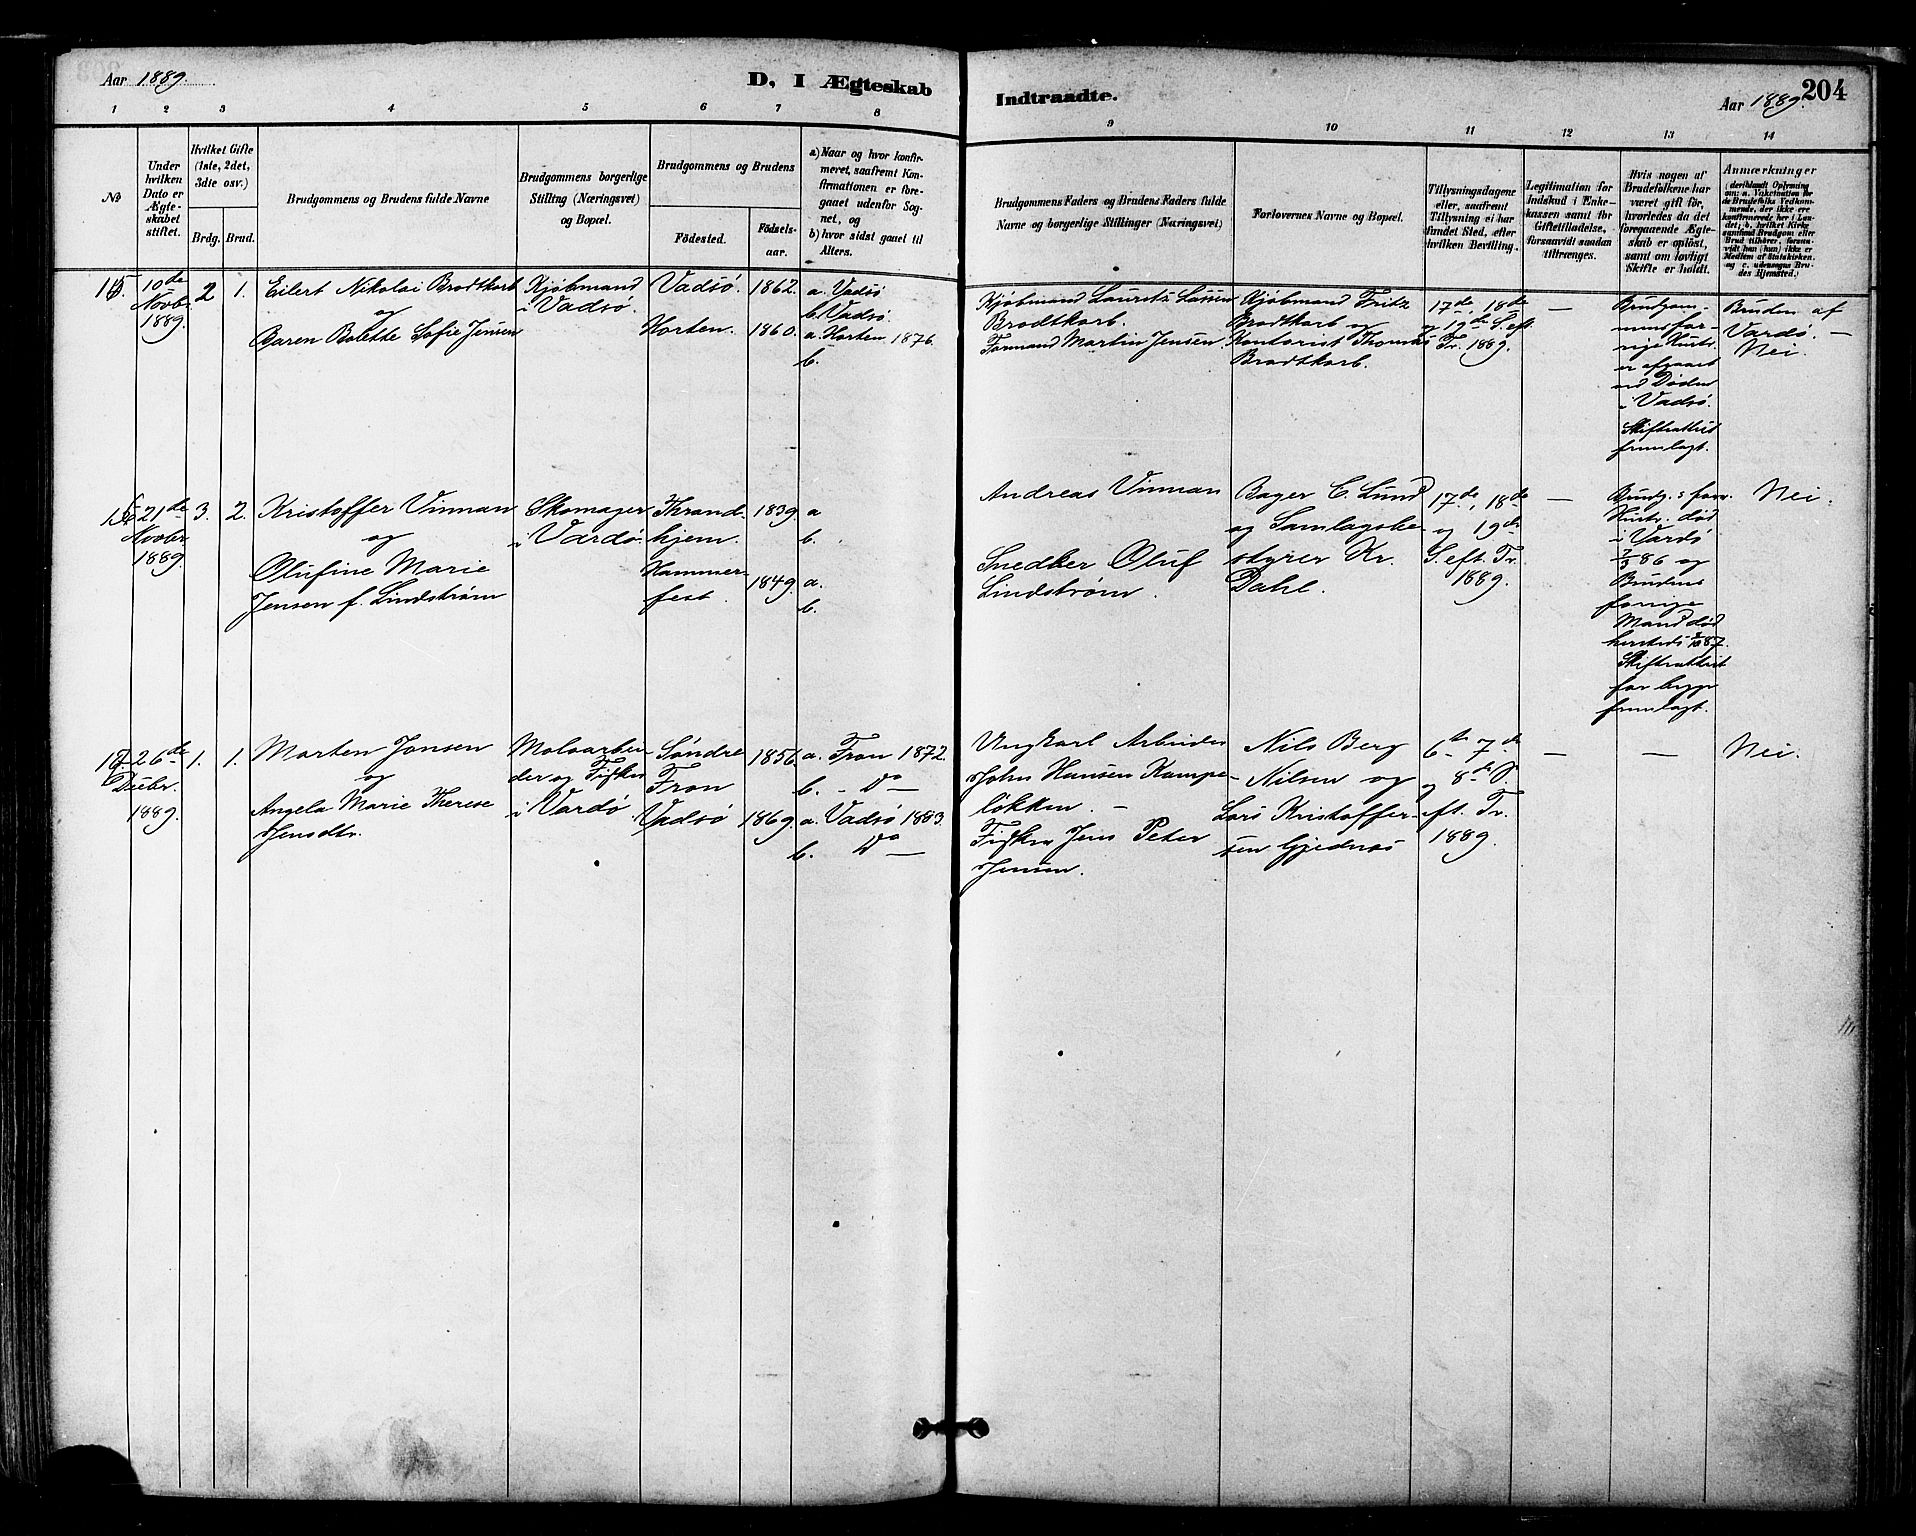 Aar 1889.
D, I Ægteskab
Indtraadte.
Aar 1889.
204
1 2 3 4 5 6 7 8
9 10 11 12 13 14
№
Under hvilken Dato er Ægteskabet stiftet.
Hvilket Gifte (1ste, 2det, 3die osv.)
Brdg. Brud.
Brudgommens og Brudens fulde Navne
Brudgommens borgerlige Stilling (Næringsvei) og Bopæl.
Brudgommens og Brudens
Fødested.
Fødselsaar.
a) Naar og hvor konfirmeret, saafremt Konfirmationen er foregaaet udenfor Sognet, og
b) hvor sidst gaaet til Alters.
Brudgommens Faders og Brudens Faders fulde Navne og borgerlige Stillinger (Næringsvei)
Forlovernes Navne og Bopæl.
Tillysningsdagene eller, saafremt Tillysning ei har fundet Sted, efter hvilken Bevilling.
Legitimation for Indskud i Enkekassen samt for Giftetilladelse, forsaavidt saadan tiltrænges.
Hvis nogen af Brudefolkene har været gift før, hvorledes da det foregaaende Ægteskab er opløst, samt om lovligt Skifte er holdt.
Anmærkninger
(deriblandt Oplysning om: a. Vakcination for de Brudefolks Vedkommende, der ikke ere konfirmerede her i Landet; b. hvilket Kirkesamfund Brudgom eller Brud tilhører, forsaavidt han (hun) ikke er Medlem af Statskirken, og c. udensogns Brudes Hjemsted.)
10de Novbr. 1889.
2 1.
Eilert Nikolai Brodtkorb
og
Baren Bolette Sofie Jensen
Kjøbmand
i Vadsø.
Vadsø. 1862.
Horten. 1860.
a. Vadsø
b. Vadsø.
a. Horten 1876.
b.
Kjøbmand Lauritz Lassen
Brodtkorb.
Formand Martin Jensen
Kjøbmand Fritz
Brodtkorb og
Kontorist Thomas
Brodtkorb.
17de, 18de
og 19de S. eft.
Tr. 1889.
—
Brudgommens forrige Hustr.
er afgaaet
ved Døden
i Vadsø.
Skifteattest
fremlagt.
Bruden af
Vardø. —
Nei.
21de
Novbr.
1889.
3. 2.
Kristoffer Vinman
og
Olufine Marie
Jensen f. Lindstrøm
Skomager
i Vardø.
Thrandhjem
1839.
Hammerfest.
1849.
a
b.
a.
b.
Andreas Vinman
Snedker Oluf
Lindstrøm.
Bager C. Lund
og Samlagsbestyrer Kr.
Dahl.
17de, 18de
og 19de
S. eft. Tr.
1889.
—
Brudg.s forr.
Hustr. død
i Vardø
86 og
Brudens
forrige
Mand død
hersteds
Skifteattest
for begge
fremlagt.
Nei.
26de
Decbr.
1889.
1. 1.
Morten Jonsen
og
Angela Marie Therese
Jensdtr.
Moloarbeider og Fisker
i Vardø
Søndre
Fron
1856.
Vadsø 1869.
a. Fron 1872.
b. - Do —
a. Vadsø 1883.
b. Do —
Ungkarl Arbeider
John Hansen Kampeløkken. —
Fisker Jens Peter
Jensen.
Nils Berg
Nilsen og
Lars Kristoffersen Gjednæs
6te 7de
og 8de S.
eft. Tr.
1889.
—
—
Nei.